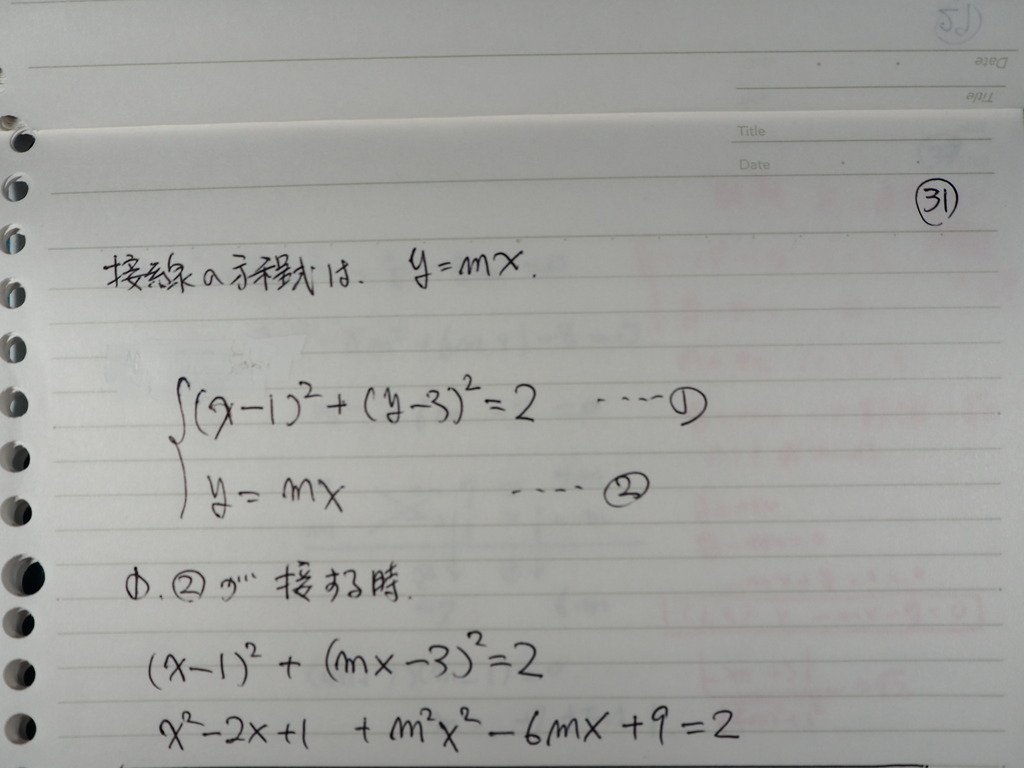 Title
Date
㉛
接線の方程式は. y=mx.
(x-1)²+(y-3)²=2 ‥‥①
y=mx ‥‥②
①.②が接する時.
(x-1)²+(mx-3)²=2
x²-2x+1 +m²x²-6mx+9=2